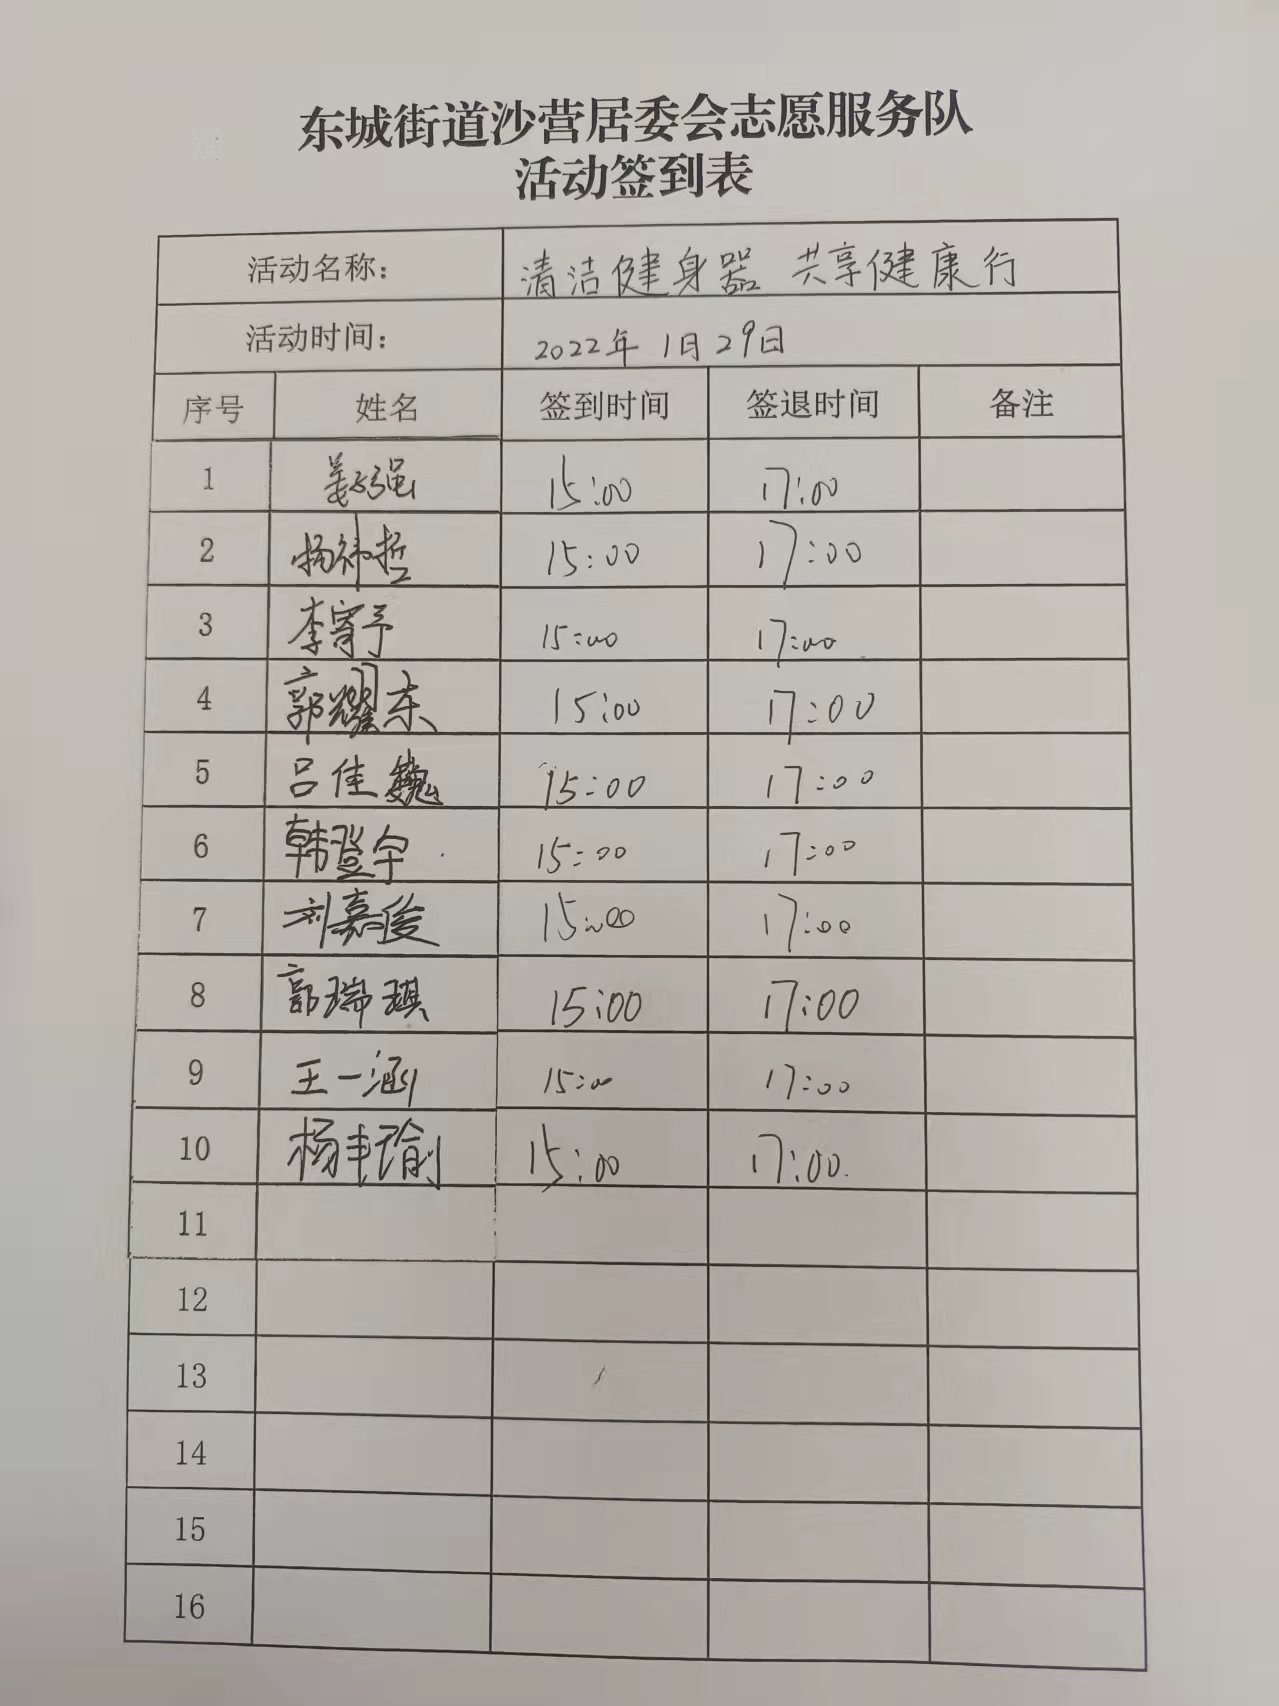 东城街道沙营居委会志愿服务队
活动签到表
活动名称： 清洁健身器 共享健康行
活动时间： 2022年 1月29日
序号 姓名 签到时间 签退时间 备注
1 姜强 15:00 17:00
2 杨祎哲 15:00 17:00
3 李寄予 15:00 17:00
4 郭耀东 15:00 17:00
5 吕佳巍 15:00 17:00
6 韩登宇 15:00 17:00
7 刘嘉俊 15:00 17:00
8 郭瑞琪 15:00 17:00
9 王一涵 15:00 17:00
10 杨丰瑜 15:00 17:00.
11
12
13
14
15
16